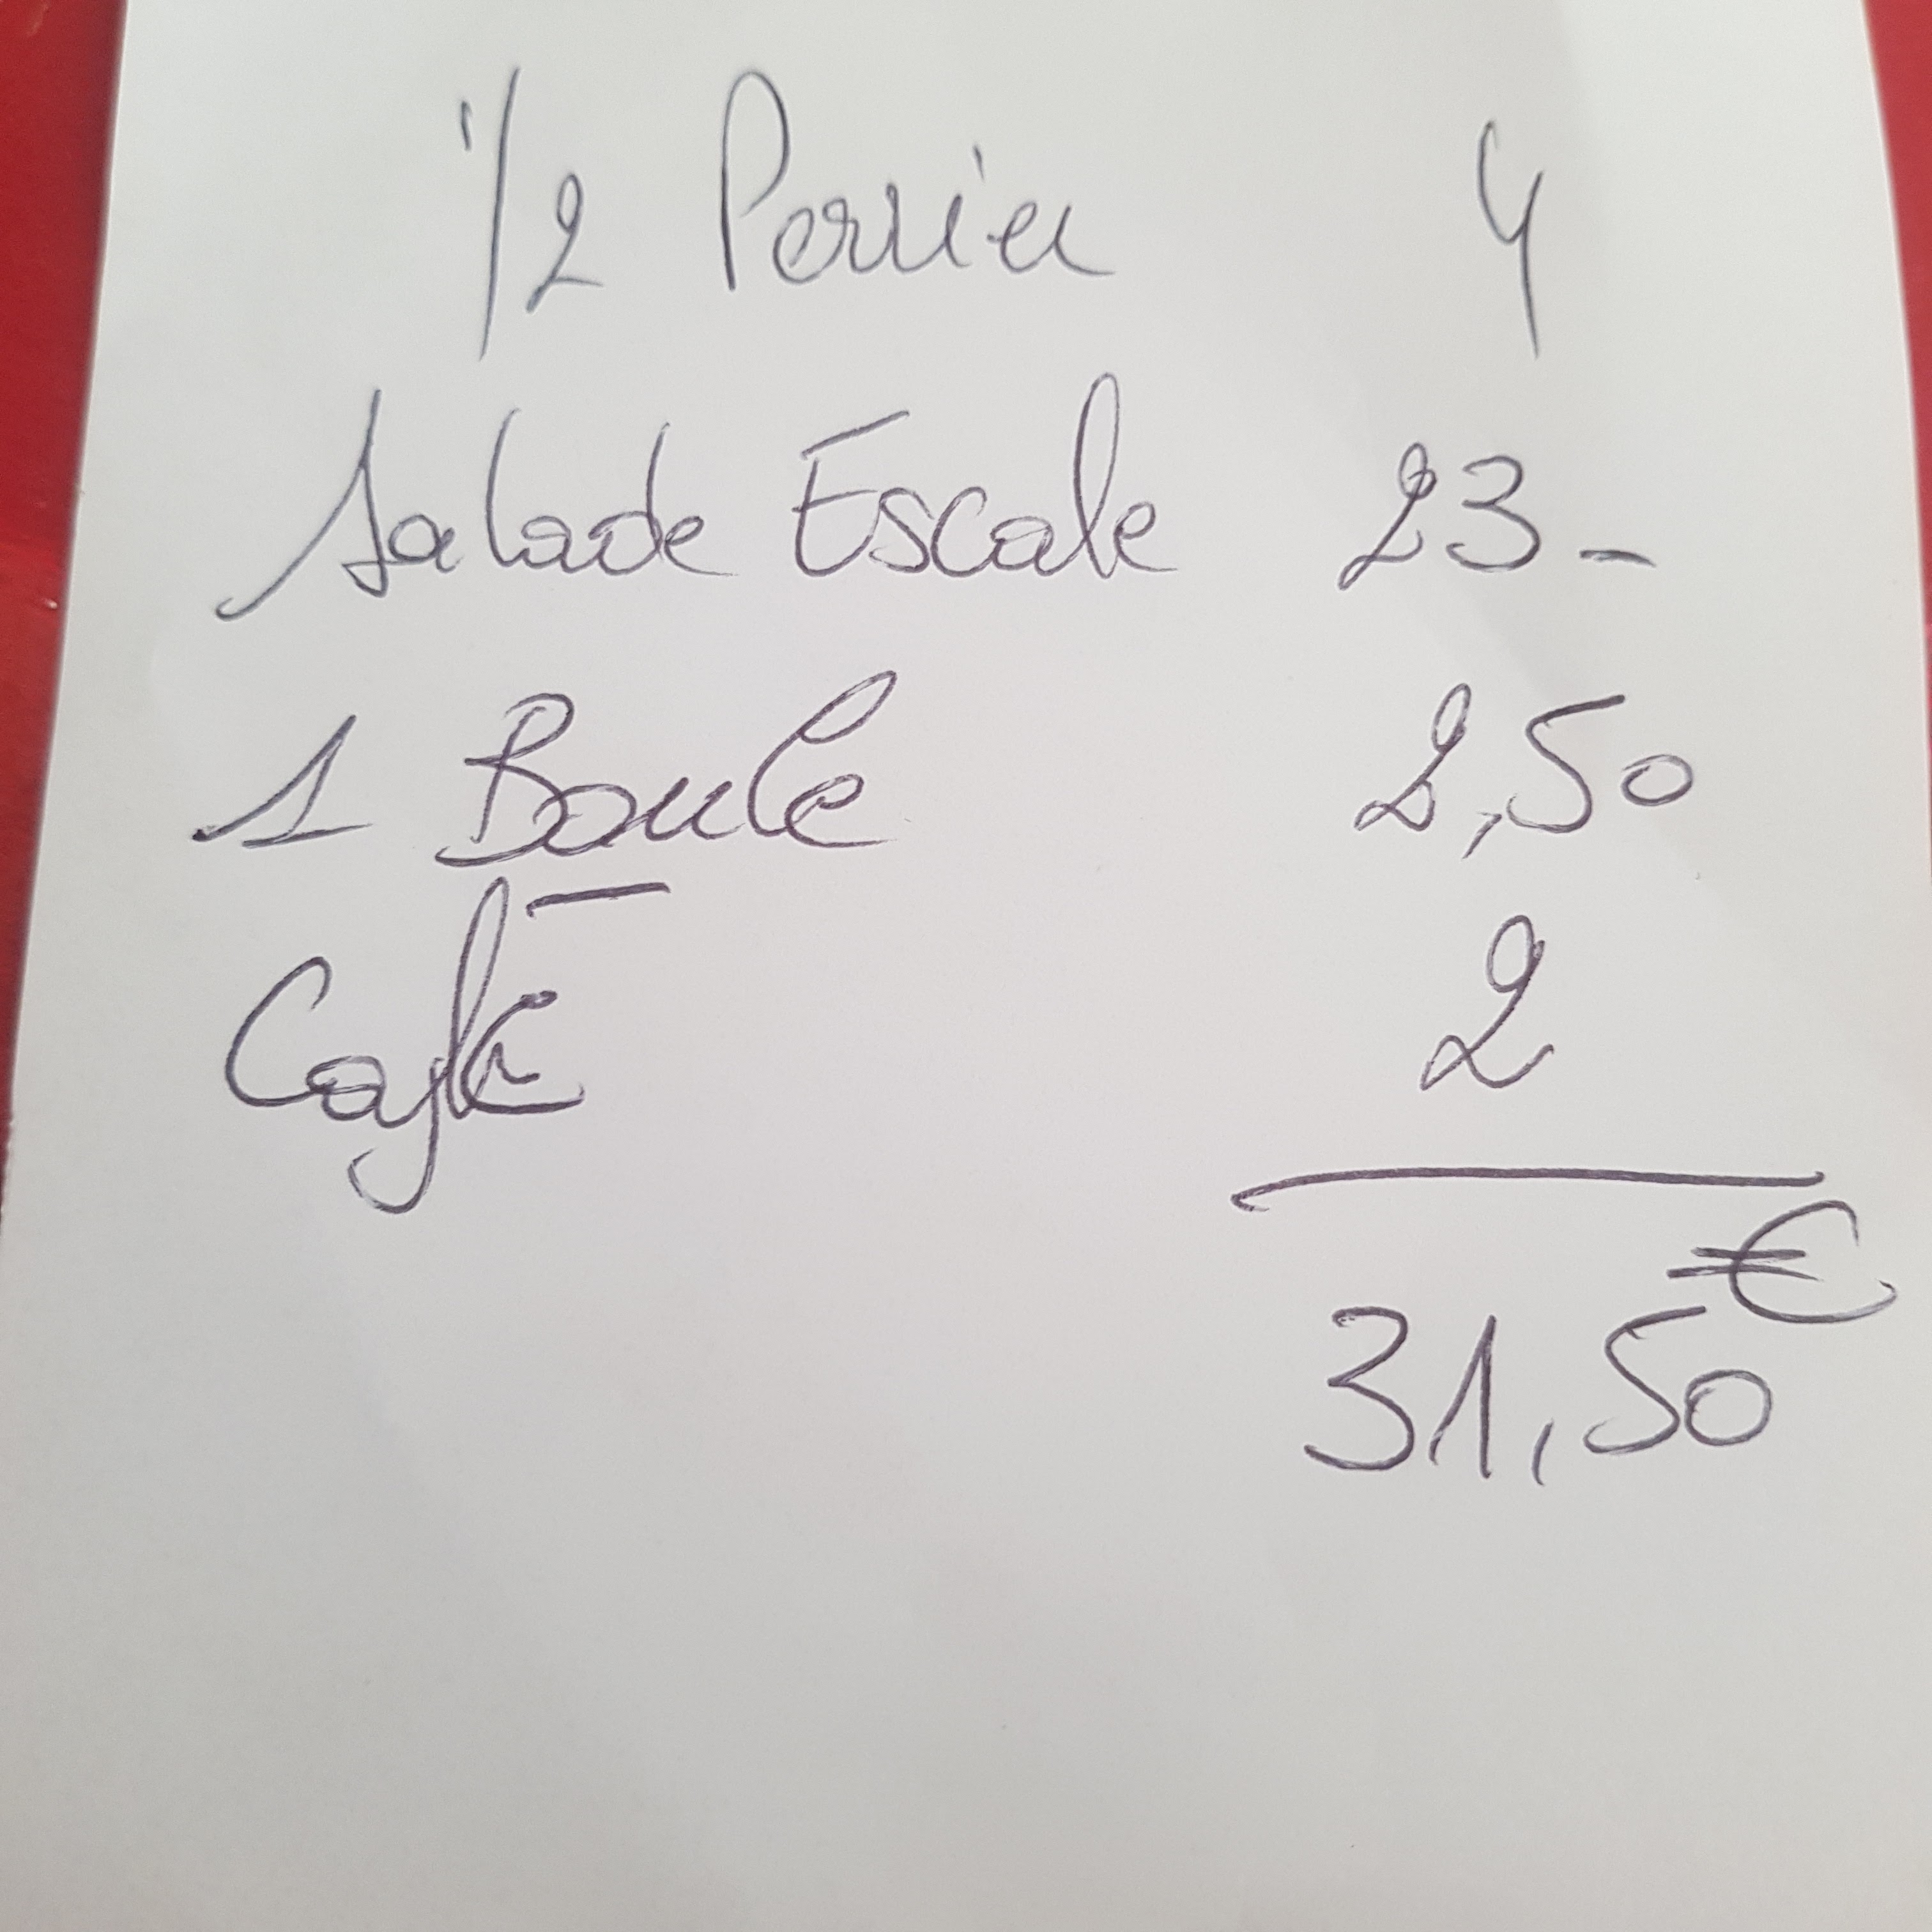 1/2 Perrier 4
Salade Escale 23-
1 Boule 2,50
Café 2
€
31,50